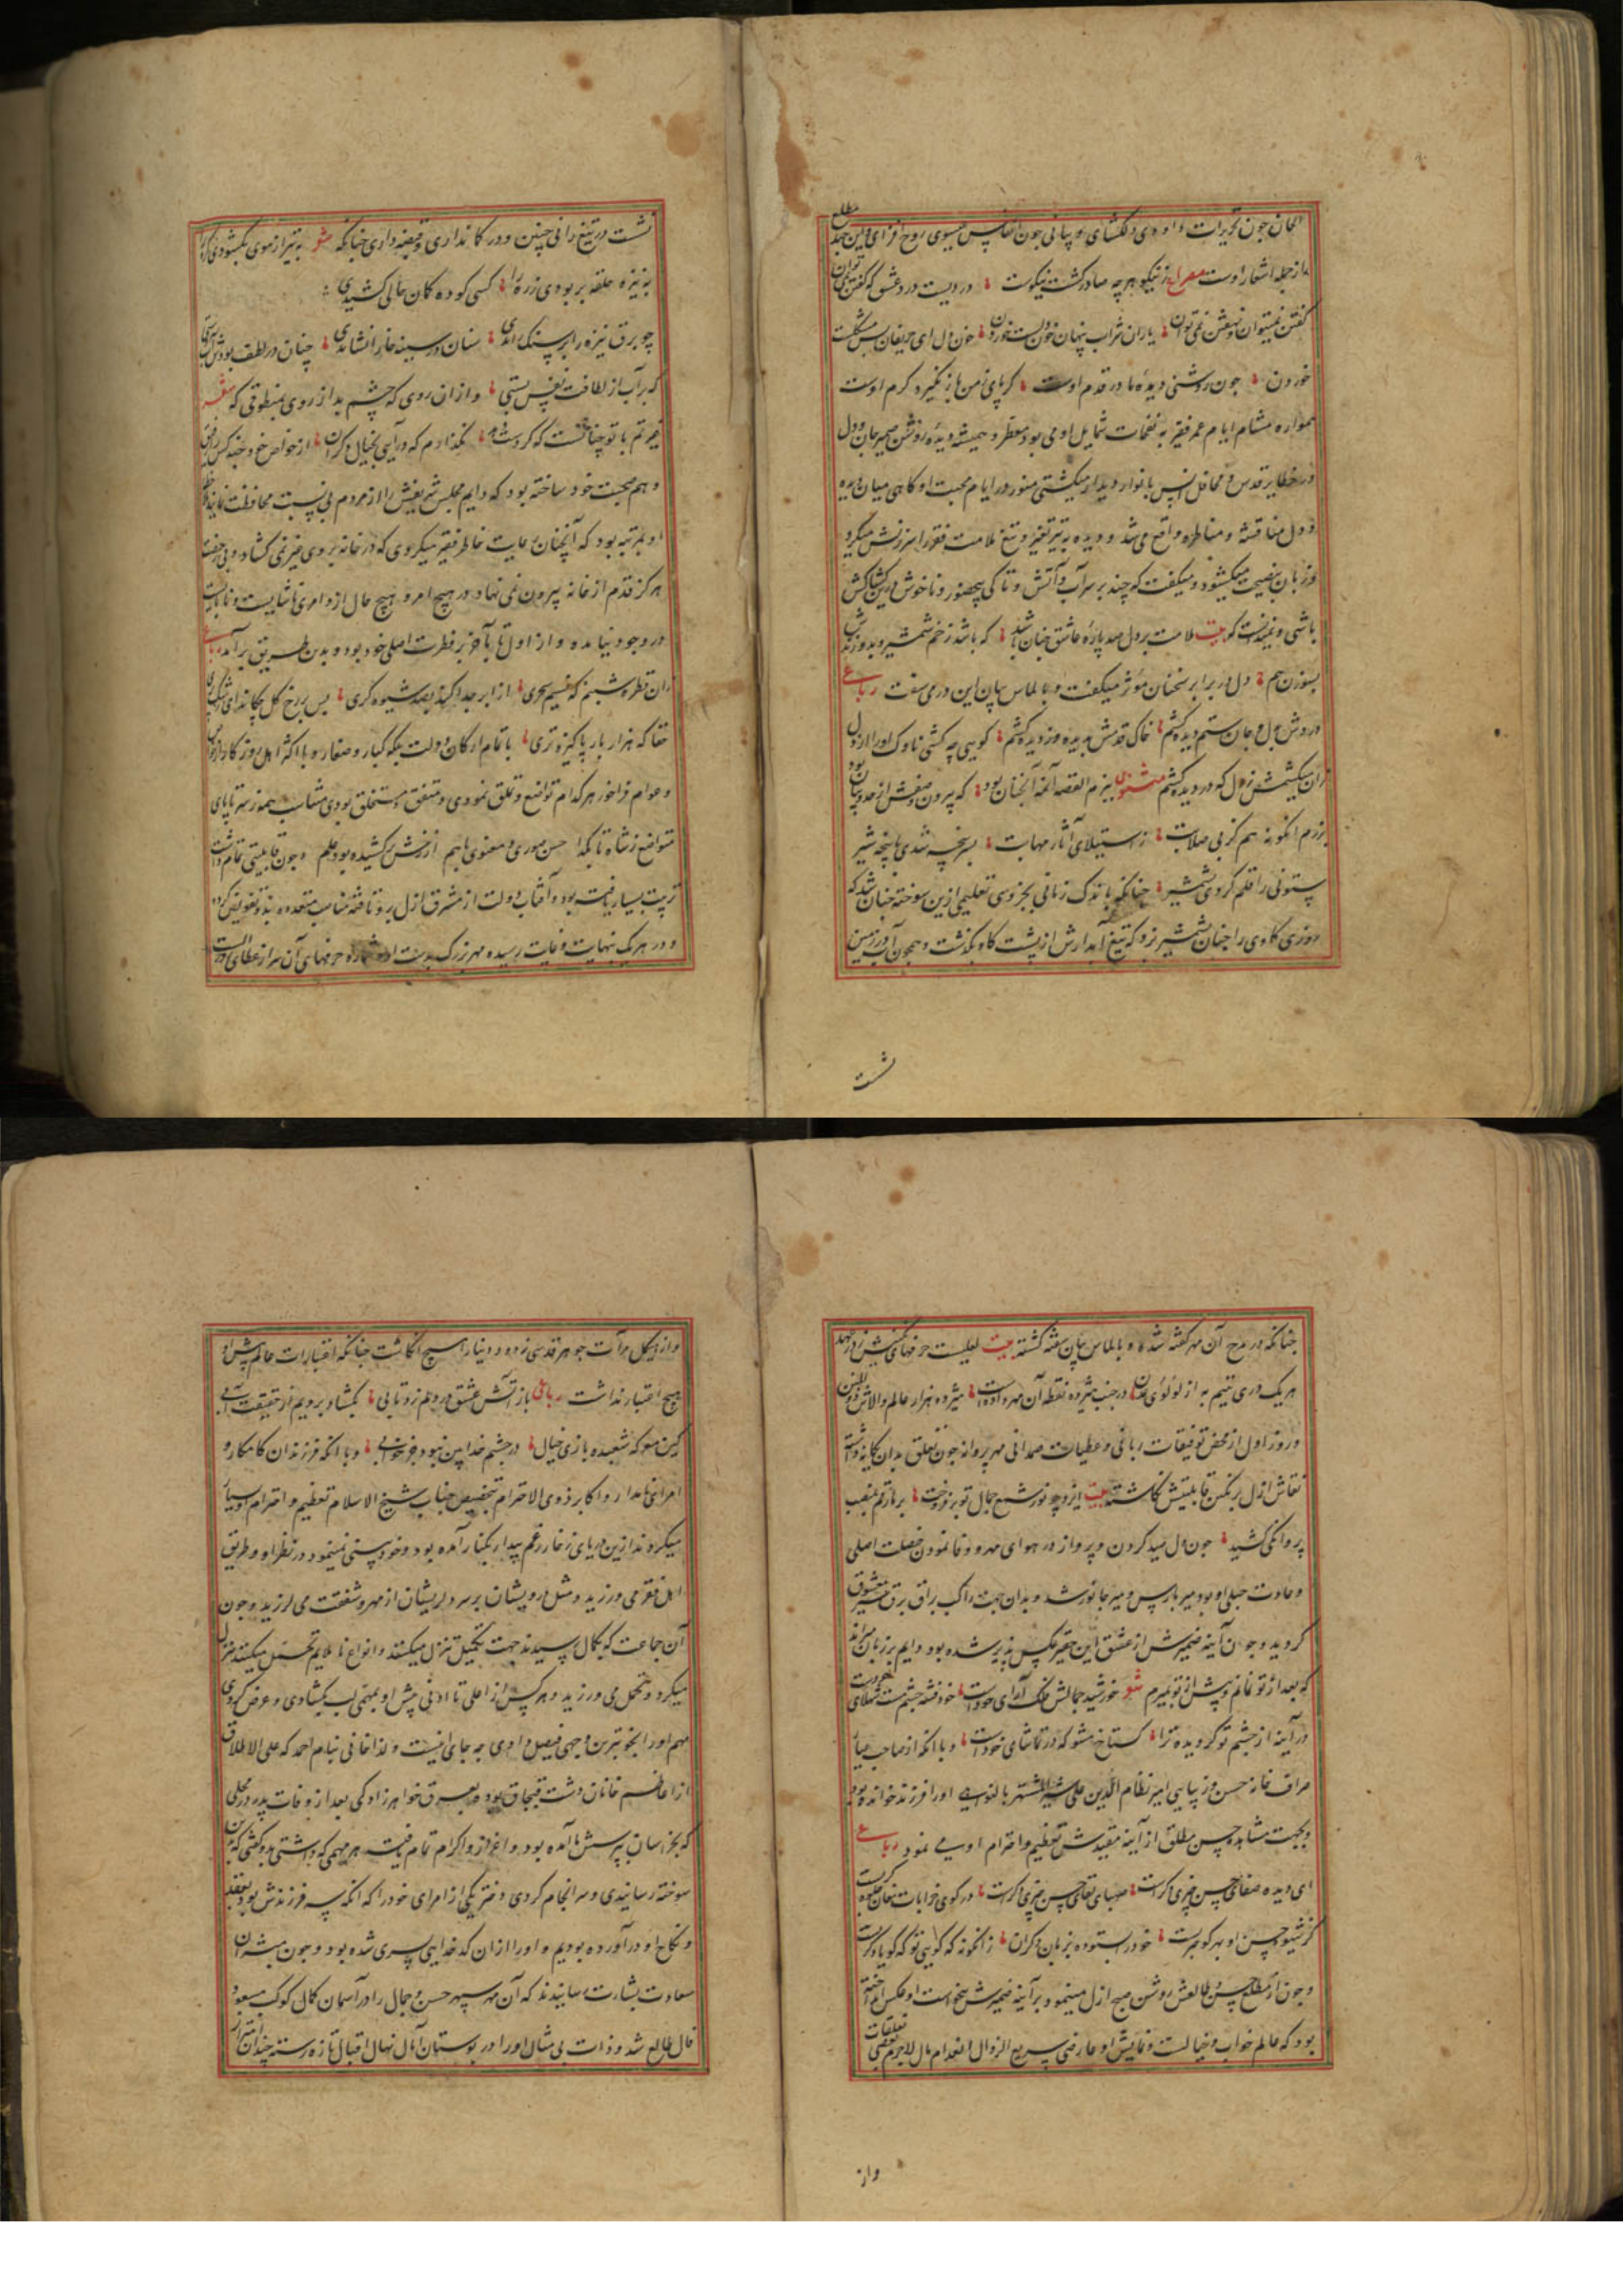 الحان چون تحریرات داودی دلکشای و بیانی چون انفاس عیسوی روح افزای و این چند مطلع
از جمله اشعار اوست مصراع ز نیکو هر چه صادر گشت نیکوست دردیست درد عشق که گفتن نمی توان
گفتن نمیتوان و نهفتن نمی توان یاران شراب پنهان خون دلست خوردن خون دل ای حریفان بس مشکلست
خوردن چون روشنی دیدهٔ ما در قدم اوست گر پای ز من باز نگیرد کرم اوست
همواره مشام ایام عمر فقیر به نفحات شمایل او می بود معطر و همیشه دیدهٔ روشن ضمیر جان و دل
در حظایر قدس و محافل انس بانوار دیدار میگشتی منور در ایام محبت او گاهی میان دیده
و دل مناقشه و مناظره واقع می شد و دیده به تیر تعیر و تیغ ملامت فقیر را سرزنش میکرد
و زبان بنصیحت میگشود و میگفت که چند بر سر آب و آتش و تا کی بیحضور و ناخوش درین کشاکش
باشی و نمیدانست که بیت ملامت بر دل صد پارهٔ عاشق چنان باشد که باشد زخم شمشیر و بدوزندش
بسوزن هم دل در برابر سخنان مؤثر میگفت و بالماس بیان این در می سفت رباعی
در وش دل و جان ستم دیده کشم خاک قدمش بدیده دزدیده کشم گویی چه کشی ناوک او را از دل
زان میکشمش ز دل که در دیده کشم مثنوی ببزم القصه آنمه آنچنان بود که بیرون وصفش از حد بیان بود
برزم انگونه هم گر بی صلابت ز استیلای آثار مهابت بسر پنجه شدی با پنجهٔ شیر
ستونی را قلم کردی بشمشیر چنانکه باندک زمانی بجزوی تعلیمی ازین سوخته چنان شد که
روزی گاوی را چنان شمشیر زد که تیغ آبدارش از پشت گاو بگذشت و همچون آب در زمین
نشست
نشست در تیغ رانی چنین و در کمانداری و قبضه داری چنانکه مثنوی به تیر از موی بگشودی گره را
به نیزه حلقه بربودی زره را کسی کو ده کمان حالی کشیدی
چو برق نیزه را بر سنگ راندی سنان در سینهٔ خارا نشاندی چنان در لطف بودش
که بر آب از لطافت نقش بستی و از ان روی که چشم بد از روی
غیرتم با تو چنانست که گر دست دهد نگذارم که درآیی بخیال دگران از خواص خود چند کس را رفیق
و هم صحبت خود ساخته بود که دایم مجلس شریفش را از مردم بی نسبت محافظت نمایند
او بمرتبه بود که آنچنان رعایت خاطر فقیر میکردی که در خانه بروی غیر نمی گشاد و بی رخصت
هرگز قدم از خانه بیرون نمی نهاد و در هیچ امر و هیچ حال از و امری ناشایست و نابایست
در وجود نیامده و از اول تا بآخر بر فطرت اصلی خود بود و بدین طریق برآمد رباعی
زان قطرهٔ شبنم که نسیم سحری از ابر جدا کند بصد شیوه گری پس بر رخ گل چکاند ای رشک پری
حقا که هزار بار پاکیزه تری با تمام ارکان دولت بلکه کبار و صغار و با اکثر اهل روزگار از خواص
و عوام فراخور هر کدام تواضع و تملق نمودی و متفق و متخلق بودی متناسب همه ز سر تا پای
متواضع ز شاه تا بگدا حسن صوری و معنوی باهم از رخش برکشیده بود علم و چون قابلیتی تمام داشت
تربیت بسیار یافته بود و آفتاب دولت از مشرق ازل برو تافته مناصب متعدده بدو تفویض کرده
و در هر یک بنهایت و غایت رسیده مهر بزرگ بدست او حرفهای آن سر از عطای
چنانکه در مدح آن مهر گفته شده و بالماس بیان سفته گشته بیت لعلیست حرفهای نگینش ز در عهد
هر یک دری یتیم به از لؤلؤی عدن در جنب هژده نقطه آن مهر آمدست هژده هزار عالم و الاش ذو المنن
و روز اول از محض توفیقات ربانی و عطیات صمدانی مهر پروانه چون تعلق بدان یگانه داشته
نقاش ازل بر نگین قابلیتش نگاشته بیت ایزد چو نور شمع جمال تو برفروخت بر ما رقم بمنصب
پروانگی کشید چون دل صید کردن و پرواز در هوای مهر و وفا نمودن خصلت اصلی
و عادت جبلی او بود میر پارس و میر جانور شد و بدان جهت راکب براق برق مسیر معشوق
گردید و چون آینهٔ ضمیرش از عشق این حقیر عکس پذیر شده بود دایم بر زبان میراند
که بعد از تو نمانم و پیش از تو بمیرم مثنوی خورشید جمالش فلک آرای خودست خود فتنهٔ چشم مست شهلای خودست
در آینه از چشم تو گر دیده ترا گستاخ مشو که در تماشای خودست و با آنکه از صاحب عیار
صراف خانهٔ حسن و زیبایی امیر نظام الدین علی شیر المشتهر بالنوائی او را فرزند خوانده بود
و بجهت مشاهدهٔ حسن مطلق از آینهٔ مقیدش تعظیم و احترام او می نمود رباعی
ای دیده صفای حسن چیزی دگرست صهبای تقای حسن چیزی دگرست در کوی خرابات مغان جلوه گرست
گر شیوهٔ حسن او بهر کو هست خود را بستوده بزبان دگران زانگونه که گویی تو که گویا دگرست
و چون از مطلع حسن طالعش روشن صبح ازل مینمود و بر آینهٔ ضمیرش عکس انداخته
بود که عالم خواب و خیالست و نمایش او عارضی سریع الزوال انعدام مآل لاجرم بعضی تعلقات
واز
و از هیکل مرآت جوهر قدسی زدود و دنیا را هیچ انگاشت چنانکه اعتبارات عالم پیش او
هیچ اعتبار نداشت رباعی باز آتش عشق در دلم زد تابی بگشاد برویم از حقیقت بابی
کین معرکهٔ شعبده بازی خیال در چشم خدا بین نبود جز خوابی و با آنکه فرزندان کامکار و
امرای نامدار و اکابر ذوی الاحترام بتخصیص جناب شیخ الاسلام تعظیم و احترام او بسیار
میکردند ازین دریای زخار رغم پیدار بکنار آمده بود و خود پرستی نمینمود در نظر او و طریق
اهل فقر می ورزید و مثل درویشان بر سر دلریشان از مهر و شفقت می لرزید و چون
آن جماعت که بکمال رسیدند جهت تکمیل تنزل میکنند و انواع ناملایم تحمل میکنند تنزل
میکرد و تحمل می ورزید و هر کس از اعلی تا ادنی پیش او بمهمی لب بگشادی و عرض کردی
مهم او را بخوبترین وجهی فیصل دادی چه جای انیست ولدا خانی نیام احمد که علی الاطلاق
از اعاظم خانان دشت قبچاق بود بعرق خواهر زادگی بعد از وفات پدر در محلی
که بخراسان بپرسش ما آمده بود و اعزاز و اکرام تمام یافت هر مهمی که داشتی بدو گفتی که بمن
سوخته رسانیدی و سرانجام کردی دختر یکی از امرای خود را که آنکه سه فرزندش بود بعقد
و نکاح او درآورده بودیم و او را از ان کدخدایی پسری شده بود و چون مبشران
سعادت بشارت رسانیدند که آن مهر سپهر حسن و جمال را در آسمان کمال کوکب مسعود
فال طالع شد و ذات بی مثال او را در بوستان آمال نهال اقبال تازه رسته چندان